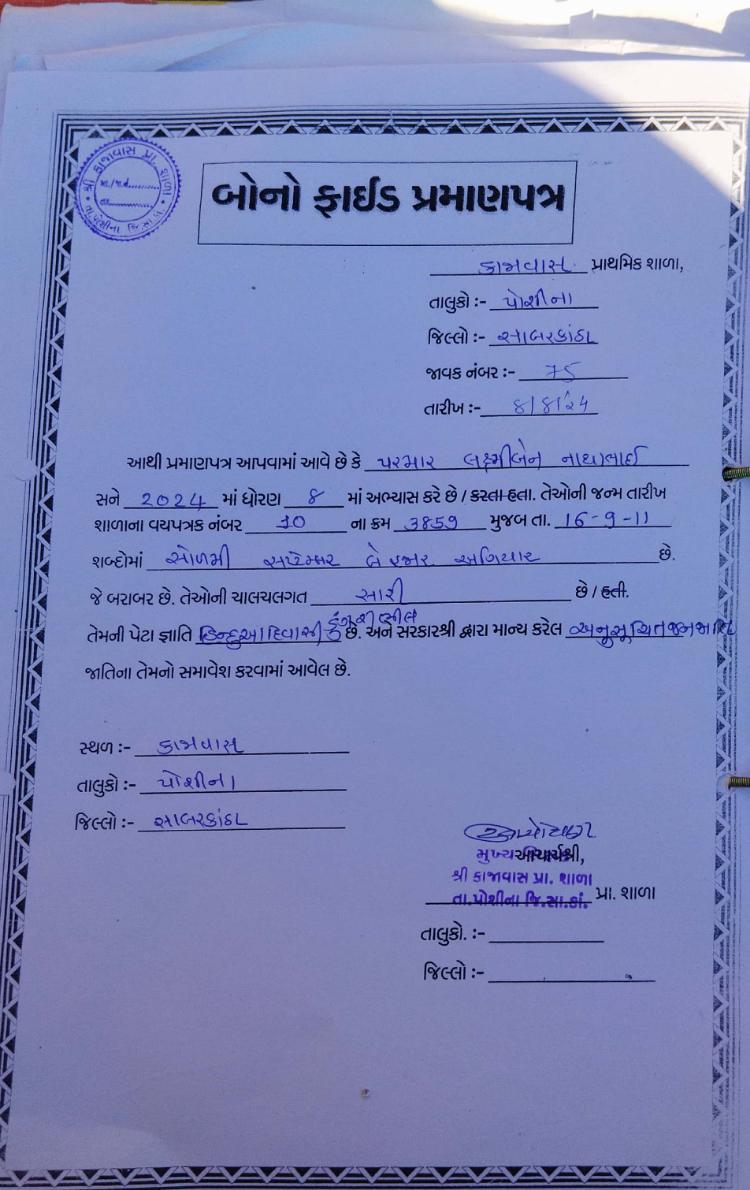 શ્રી કાજાવાસ પ્રા. શાળા
મા./જા.નં............
તા............
તા. પોશીના જિ. સા.કાં.
બોનો ફાઈડ પ્રમાણપત્ર
કાજાવાસ પ્રાથમિક શાળા,
તાલુકો :- પોશીના
જિલ્લો :- સાબરકાંઠા
જાવક નંબર :- 75
તારીખ :- ૪/૪/૨૪
આથી પ્રમાણપત્ર આપવામાં આવે છે કે પરમાર લક્ષ્મીબેન નાથાભાઈ
સને 2024 માં ધોરણ ૪ માં અભ્યાસ કરે છે / કરતા હતા. તેઓની જન્મ તારીખ
શાળાના વયપત્રક નંબર 10 ના ક્રમ 3859 મુજબ તા. 16-9-11
શબ્દોમાં સોળમી સપ્ટેમ્બર બે હજાર અગિયાર છે.
જે બરાબર છે. તેઓની ચાલચલગત સારી છે / હતી.
ડુંગરી ભીલ
તેમની પેટા જ્ઞાતિ હિન્દુ આદિવાસી છે. અને સરકારશ્રી દ્વારા માન્ય કરેલ અનુસૂચિત જનજાતિ
જાતિના તેમનો સમાવેશ કરવામાં આવેલ છે.
સ્થળ :- કાજાવાસ
તાલુકો :- પોશીના
જિલ્લો :- સાબરકાંઠા
મુખ્ય આચાર્યશ્રી,
શ્રી કાજાવાસ પ્રા. શાળા
તા.પોશીના જિ.સા.કાં. પ્રા. શાળા
તાલુકો. :-
જિલ્લો :-